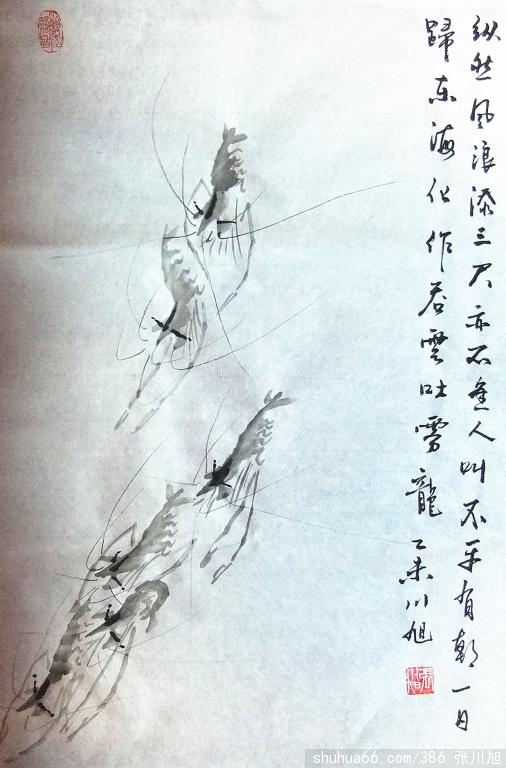 纵然风浪添三尺亦不人叫不平有朝一日
歸东海化作吞雲吐雾龍 乙未川旭
shuhua66.com/386 张川旭